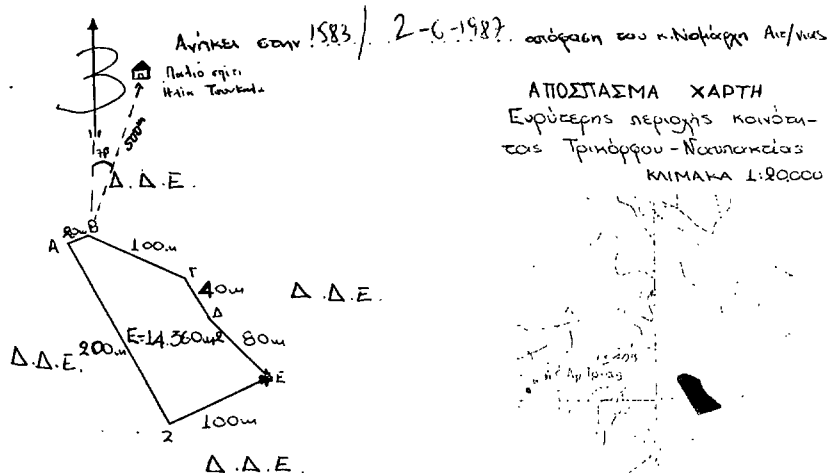 Ανήκει στην 1583/2-6-1987 απόφαση του κ. Νομάρχη Αιτ/νιας
Παλιό σπίτι
Ηλία
500m
Δ.Δ.Ε.
A
20m
B
100m
Γ
40m
Δ
80m
E
Δ.Δ.Ε.
Δ.Δ.Ε.
200m
E=14.360m2
100m
Z
Δ.Δ.Ε.
ΑΠΟΣΠΑΣΜΑ ΧΑΡΤΗ
Ευρύτερης περιοχής κοινότη-
τας Τρικόρφου-Ναυπακτίας
ΚΛΙΜΑΚΑ 1:20.000